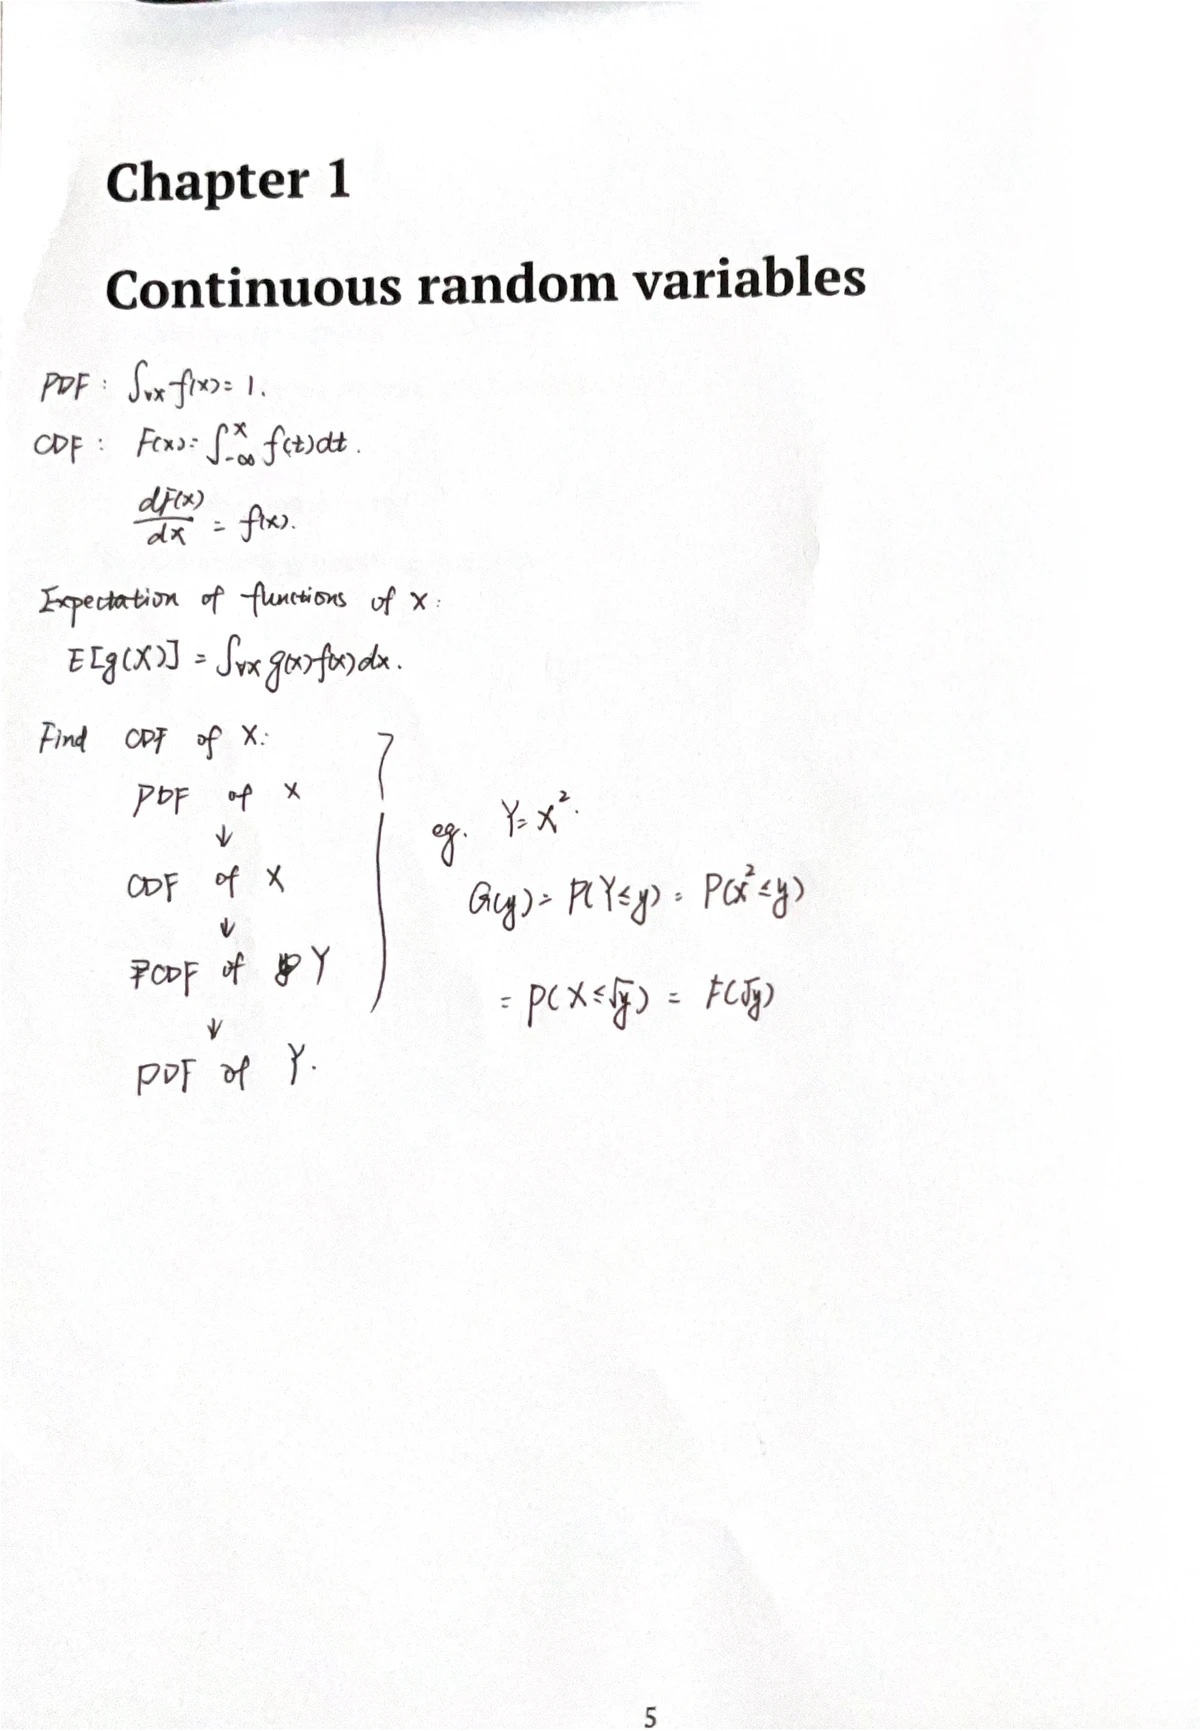 Chapter 1
Continuous random variables
PDF : ∫∀x f(x) = 1.
CDF : F(x) = ∫_{-∞}^{x} f(t)dt.
dF(x)/dx = f(x).
Expectation of functions of X:
E[g(X)] = ∫∀x g(x)f(x)dx.
Find CDF of X:
PDF of X
↓
CDF of X
↓
CDF of Y
↓
PDF of Y.
eg. Y = X².
G(y) = P(Y≤y) = P(X²≤y)
= P(X≤√y) = F(√y)
5